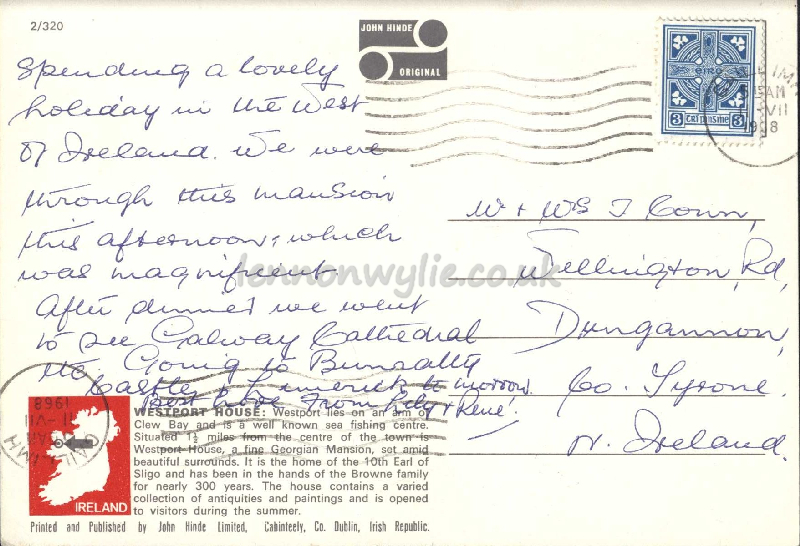 2/320
JOHN HINDE
ORIGINAL
éire
3 TRÍ PINGNE 3
AM
VII
Spending a lovely
holiday in the West
of Ireland. We were
through this mansion
this afternoon, which
was magnificent
After dinner we went
to see Galway Cathedral
etc Going to Bunratty
Castle & Limerick to morrow.
Best love From & Rene.
Mr + Mrs T Conn,
Wellington Rd,
Dungannon,
Co. Tyrone.
N. Ireland.
lennonwylie.co.uk
GAILLIMH
11-VII
1968
IRELAND
WESTPORT HOUSE: Westport lies on an arm of
Clew Bay and is a well known sea fishing centre.
Situated 1½ miles from the centre of the town is
Westport House, a fine Georgian Mansion, set amid
beautiful surrounds. It is the home of the 10th Earl of
Sligo and has been in the hands of the Browne family
for nearly 300 years. The house contains a varied
collection of antiquities and paintings and is opened
to visitors during the summer.
Printed and Published by John Hinde Limited, Cabinteely, Co. Dublin, Irish Republic.